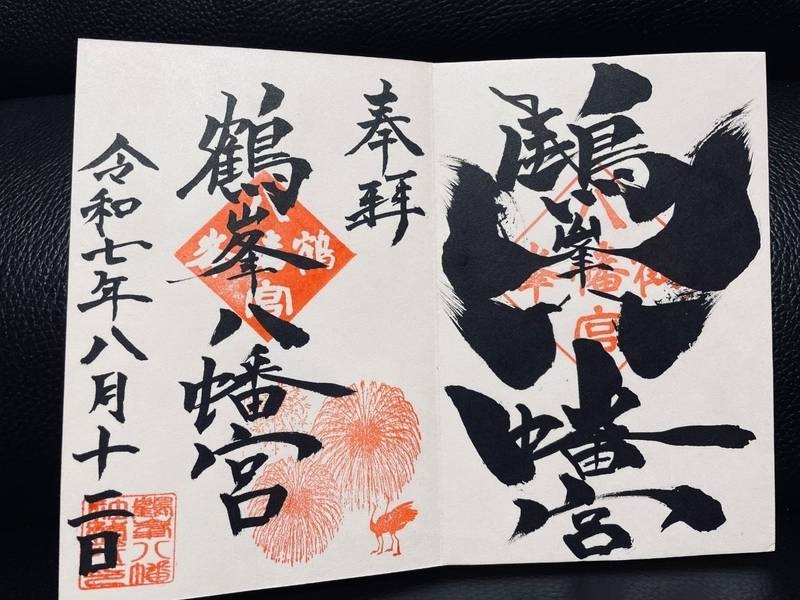 鶴峯八幡宮
奉拝
鶴峯八幡宮
令和七年八月十二日
八幡宮
鶴峯
鶴峯八幡